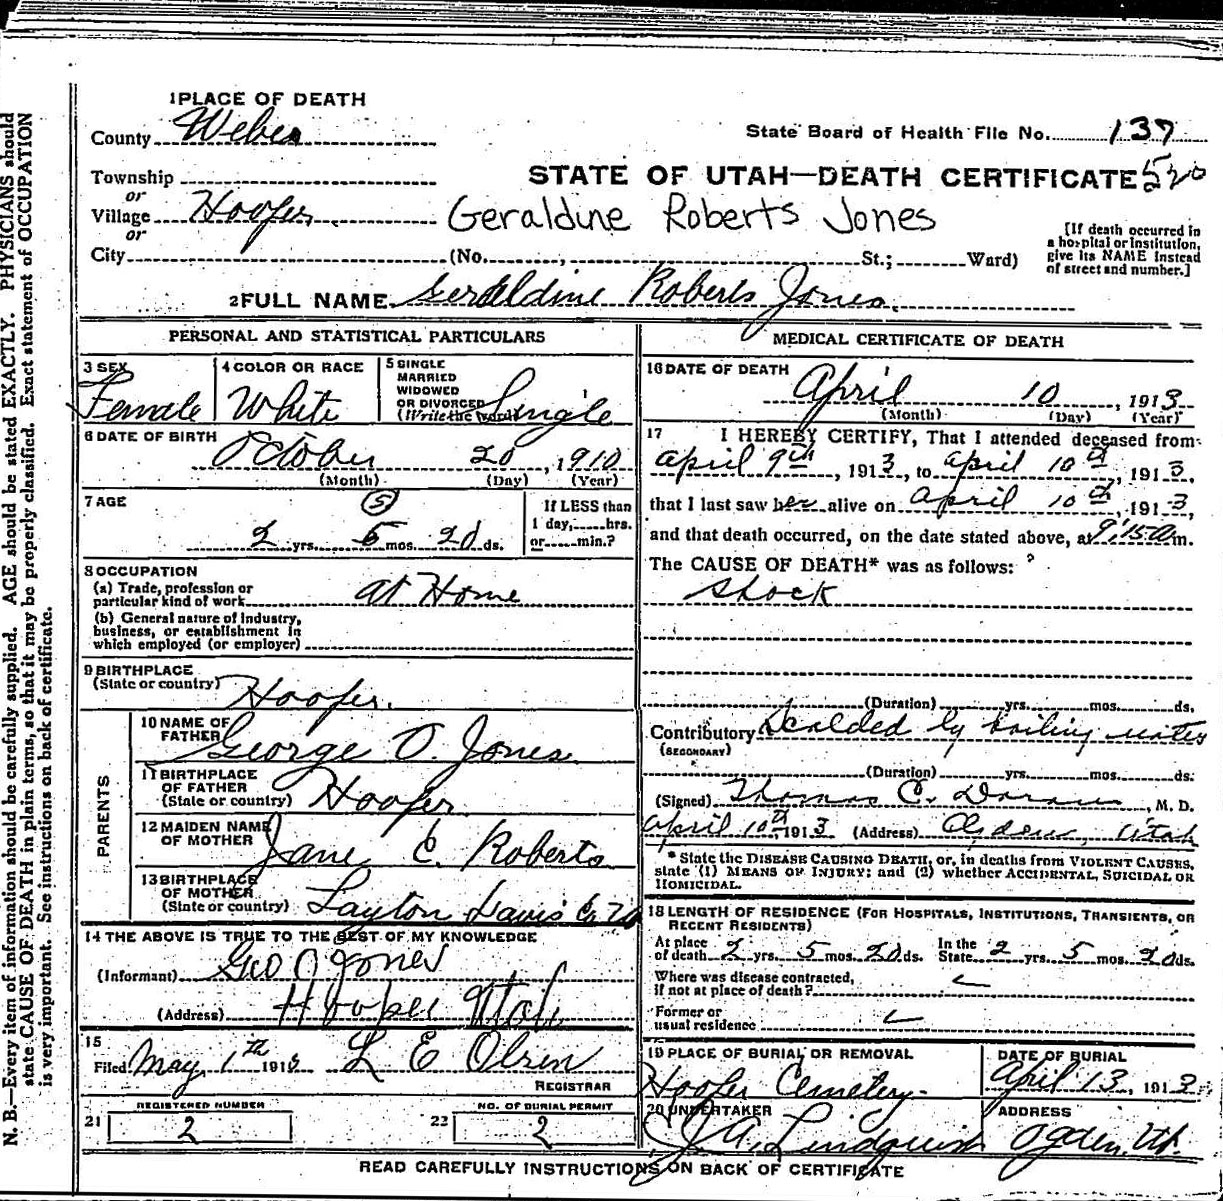 N. B.—Every item of information should be carefully supplied. AGE should be stated EXACTLY. PHYSICIANS should
state CAUSE OF DEATH in plain terms, so that it may be properly classified. Exact statement of OCCUPATION
is very important. See instructions on back of certificate.
1 PLACE OF DEATH
County Weber
State Board of Health File No. 137
Township
or
STATE OF UTAH—DEATH CERTIFICATE 520
Village Hooper
Geraldine Roberts Jones
or
City (No. , St.; Ward)
[If death occurred in
a hospital or institution,
give its NAME instead
of street and number.]
2 FULL NAME Geraldine Roberts Jones
PERSONAL AND STATISTICAL PARTICULARS
3 SEX
Female
4 COLOR OR RACE
White
5 SINGLE
MARRIED
WIDOWED
OR DIVORCED
(Write the word) Single
6 DATE OF BIRTH
October 20, 1910
(Month) (Day) (Year)
7 AGE
5
2 yrs. 5 mos. 20 ds.
If LESS than
1 day, hrs.
or min.?
8 OCCUPATION
(a) Trade, profession or
particular kind of work At Home
(b) General nature of industry,
business, or establishment in
which employed (or employer)
9 BIRTHPLACE
(State or country) Hooper.
PARENTS
10 NAME OF
FATHER George O. Jones
11 BIRTHPLACE
OF FATHER
(State or country) Hooper
12 MAIDEN NAME
OF MOTHER Jane C. Roberts
13 BIRTHPLACE
OF MOTHER
(State or country) Layton Davis Co
14 THE ABOVE IS TRUE TO THE BEST OF MY KNOWLEDGE
(Informant) Geo O Jones
(Address) Hooper Utah
15
Filed May 1th 1913 L E Olsen
REGISTRAR
REGISTERED NUMBER
21 2
NO. OF BURIAL PERMIT
22 2
MEDICAL CERTIFICATE OF DEATH
16 DATE OF DEATH
April 10, 1913
(Month) (Day) (Year)
17 I HEREBY CERTIFY, That I attended deceased from
April 9th, 1913, to April 10th, 1913,
that I last saw her alive on April 10th, 1913,
and that death occurred, on the date stated above, at 9:15 a m.
The CAUSE OF DEATH* was as follows:
Shock
(Duration) yrs. mos. ds.
Contributory Scalded by boiling water
(SECONDARY)
(Duration) yrs. mos. ds.
(Signed) Thomas C. , M. D.
April 10th 1913 (Address) Ogden, Utah
* State the DISEASE CAUSING DEATH, or, in deaths from VIOLENT CAUSES,
state (1) MEANS OF INJURY; and (2) whether ACCIDENTAL, SUICIDAL OR
HOMICIDAL.
18 LENGTH OF RESIDENCE (FOR HOSPITALS, INSTITUTIONS, TRANSIENTS, OR
RECENT RESIDENTS)
At place
of death 2 yrs. 5 mos. 20 ds.
In the
State 2 yrs. 5 mos. 20 ds.
Where was disease contracted,
if not at place of death?
Former or
usual residence
19 PLACE OF BURIAL OR REMOVAL
Hooper Cemetery
DATE OF BURIAL
April 13, 1913
20 UNDERTAKER
J. A. Lindquist
ADDRESS
Ogden, Ut.
READ CAREFULLY INSTRUCTIONS ON BACK OF CERTIFICATE